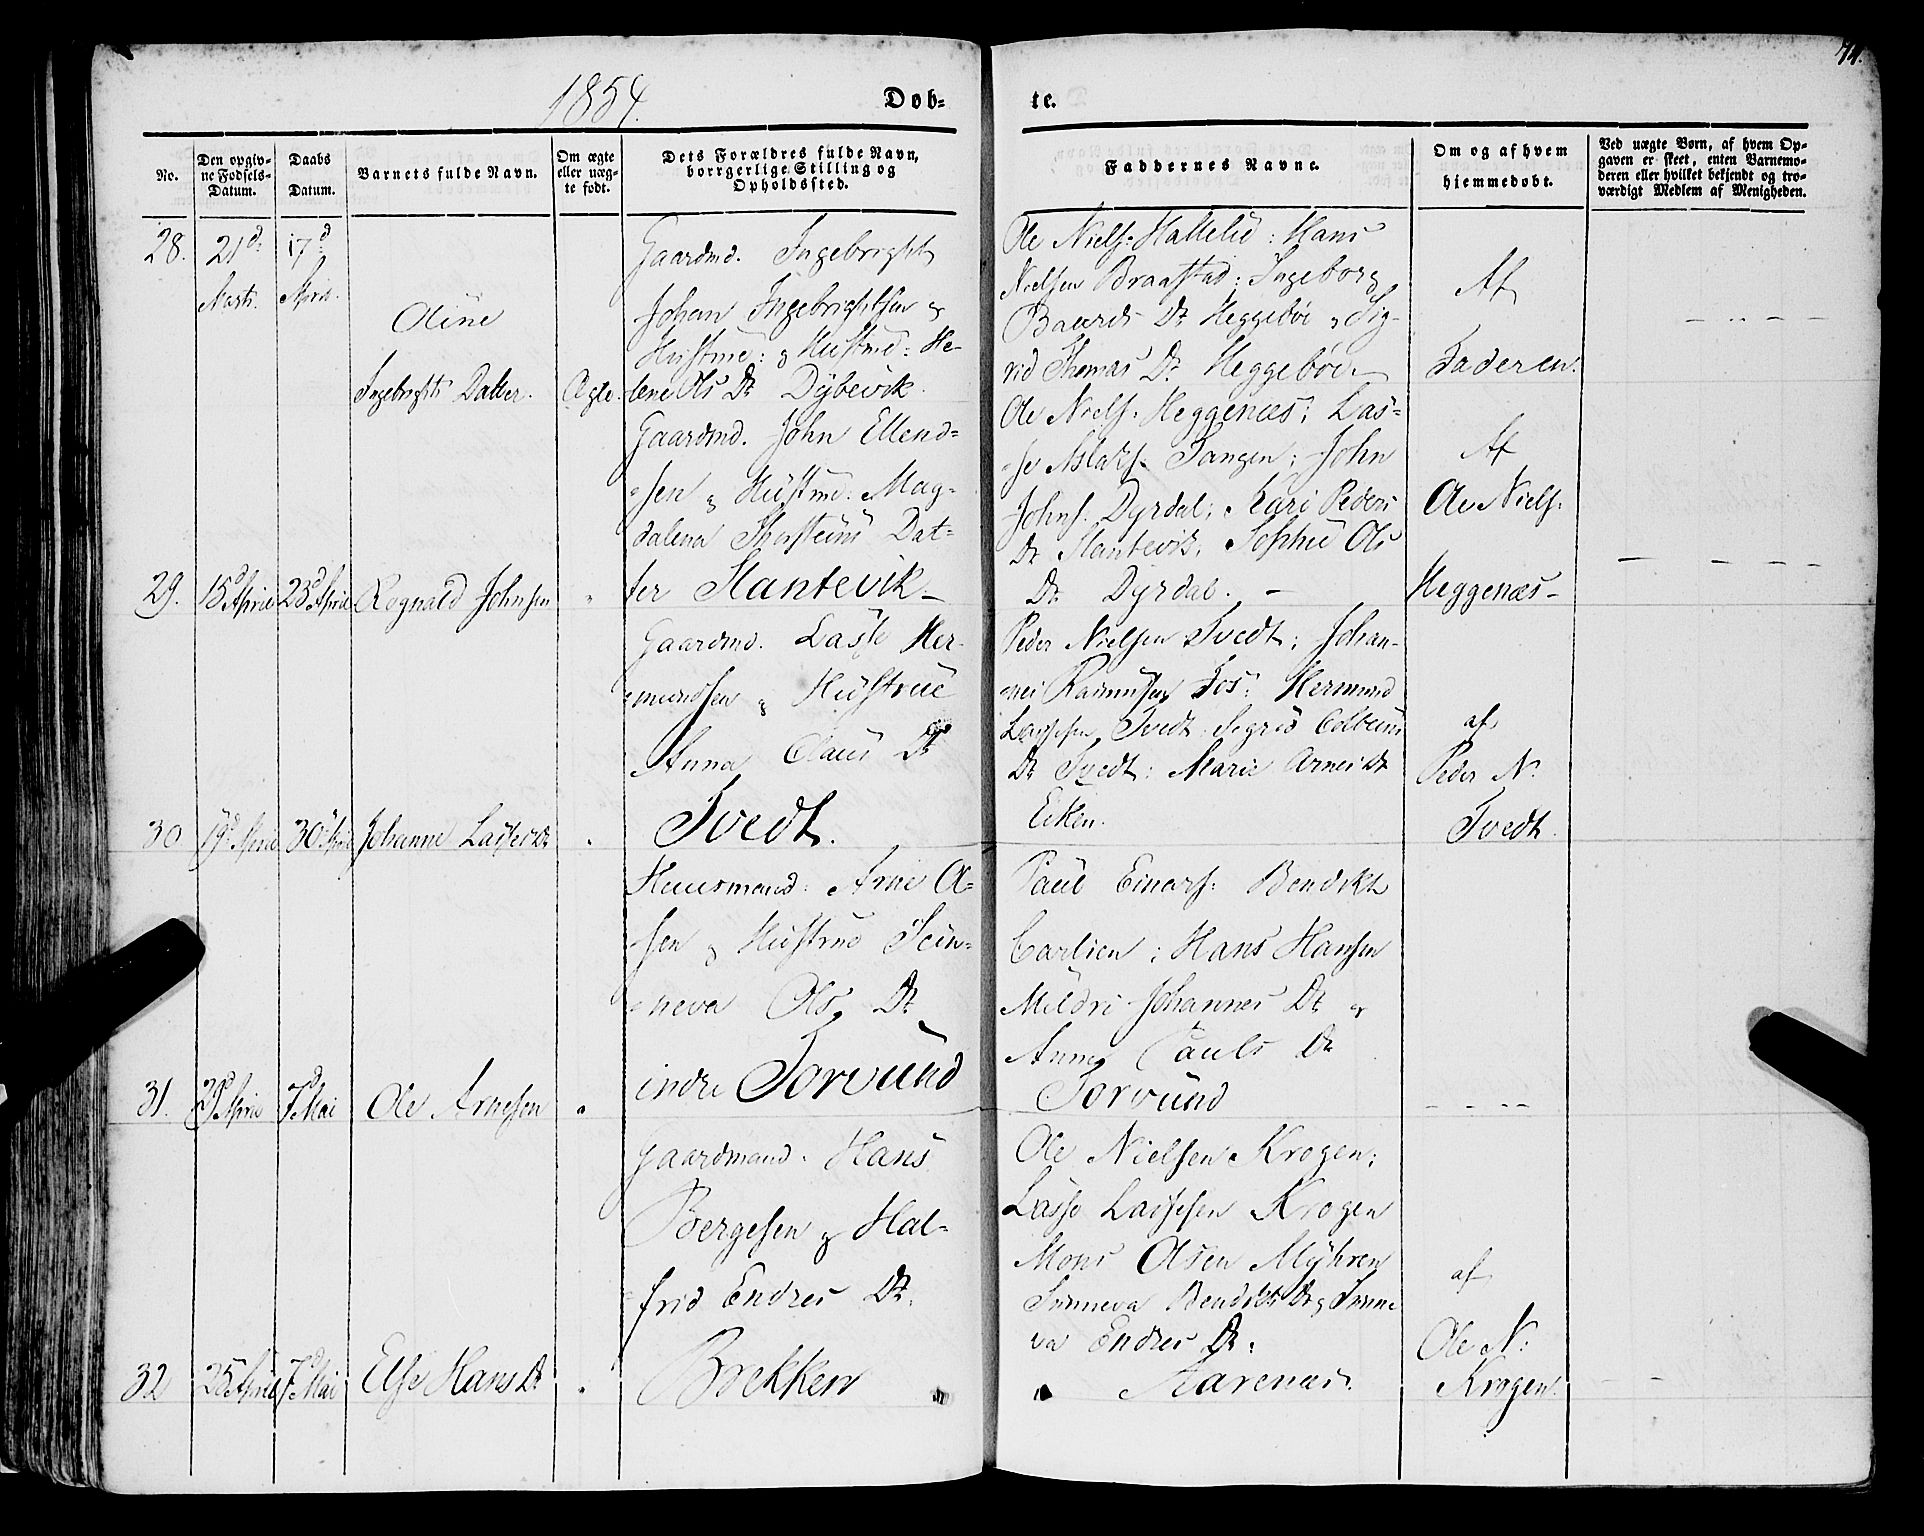 1854.
Dob-
te.
No.
Den opgiv-
ne Fødsels-
Datum.
Daabs
Datum.
Barnets fulde Navn.
Om ægte
eller uæg-
te født.
Dets Forældres fulde Navn,
borrgerlige Stilling og
Opholdssted.
Faddernes Navne.
Om og af hvem
hjemmedøbt.
Ved uægte Børn, af hvem Op-
gaven er skeet, enten Barnemo-
deren eller hvilket bekjendt og tro-
værdigt Medlem af Menigheden.
28.
21d
Marts.
17d
April.
Oline
Ingebrigts Datter.
Ægte.
Gaardmd. Ingebright
Johan Ingebrightsen og
Hustrue: og Hustrue: He-
lene Ols Dt Dybevik.
Ole Niels: Hallelid: Hans
Nielsen Braastad; Ingeborg
Baards Dt Heggebøe, Sig-
rid Thomas Dt Heggebøe.
Af
Faderen.
29.
15d April
23d April
Rognald Johnsen
"
Gaardmd. John Ellend-
sen og Hustrue: Mag-
dalena Thorsteins Dat-
ter Slantevik
Ole Niels. Heggenæs; Las-
se Aslaks. Tangen; John
Johns. Dyrdal; Kari Peders
Dt Slantevik; Sophie Ols
Dt Dyrdal.
Af
Ole Niels.
Heggenæs
30
19d April
30d April
Johanne Lasses Dt
"
Gaardmd. Lasse Her-
mundsen og Hustrue
Anna Claus Dt
Tvedt.
Peder Nielsen Tvedt; Johan-
nes Rasmusen Fos: Hermund
Lassesen Tvedt Sigrid Colbeins
Dt Tvedt; Marie Arnes Dt
Eiken.
af
Peder N.
Tvedt.
31.
April
7d Mai
Ole Arnesen
"
Huusmand: Arne Ol-
sen og Hustrue Sein-
neva Ols Dt
indre Torvund
Paul Einars: Bendikt
Carlsen; Hans Hansen
Mildri Johannes Dt og
Anne Pauls Dt
Torvund
32
25d April
7d Mai
Else Hans Dt
"
Gaardmand. Hans
Bergesen og Hal-
frid Endres Dt.
Brekken
Ole Nielsen Krogen;
Lasse Lassesen Krogen
Mons Olsen Myhren
Sunneva Bendikts Dt og Sunne
va Endres Dt.
Aarenæs.
af
Ole N.
Krogen.